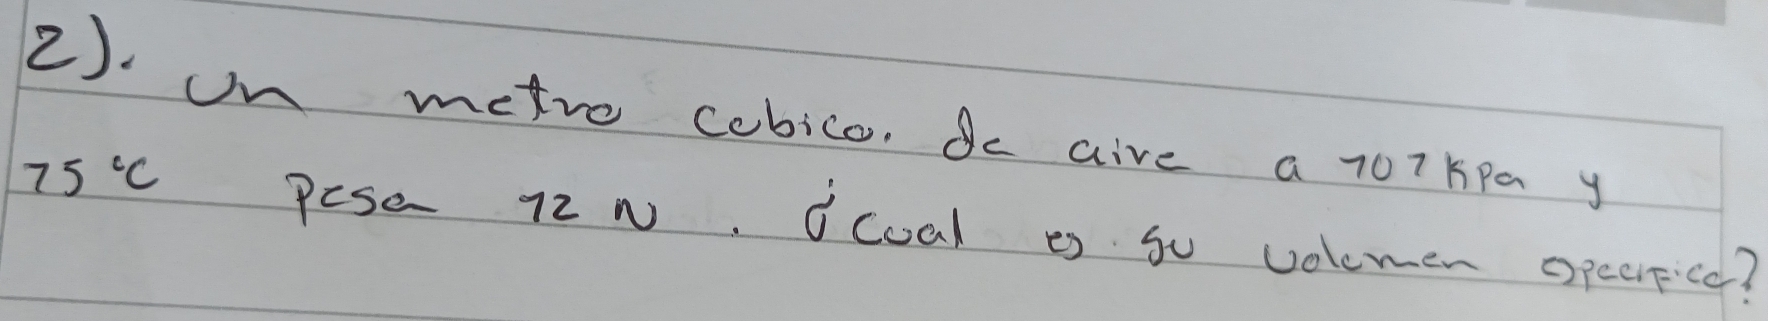 2). Un metro cubico. de aire a 101 KPa y
15 °C pesa 12 N. ¿cual es su volumen especifico?